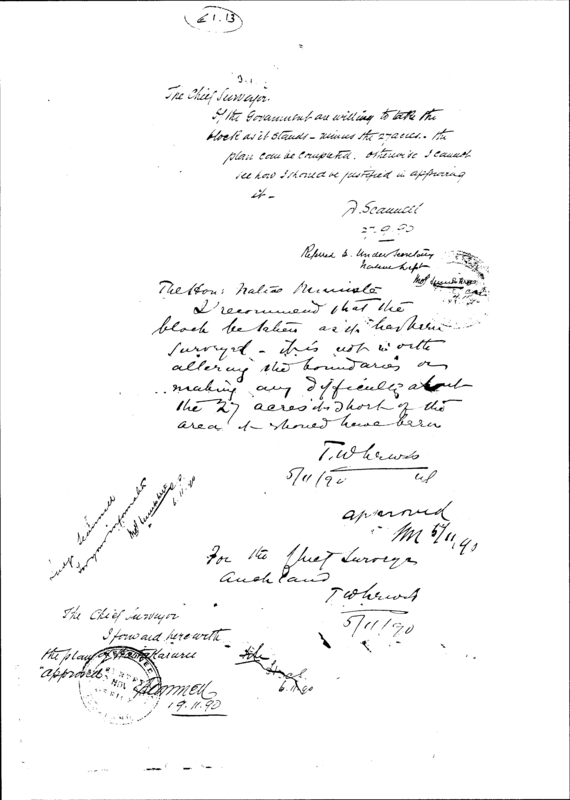 E1.13
3.
The Chief Surveyor.
If the Government are willing to take the
block as it stands - minus the 27 acres - the
plan can be completed. Otherwise I cannot
see how I should be justified in approving
it -
D. Scannell
27.9.90
Referred to Under Secretary
Native Dept
The Hon: Native Minister
I recommend that the
block be taken as it has been
surveyed - it is not worth
altering the boundaries or
making any difficulty about
the 27 acres it is short of the
area it should have been
T. W. Lewis
5/11/90
approved
5/11/90
Judge Scannell
for your information
6.11.90
For the Chief Surveyor
Auckland
T W Lewis
5/11/90
The Chief Surveyor
I forward herewith
the plan of
"approved"
Scannell
19.11.90
6.11.90